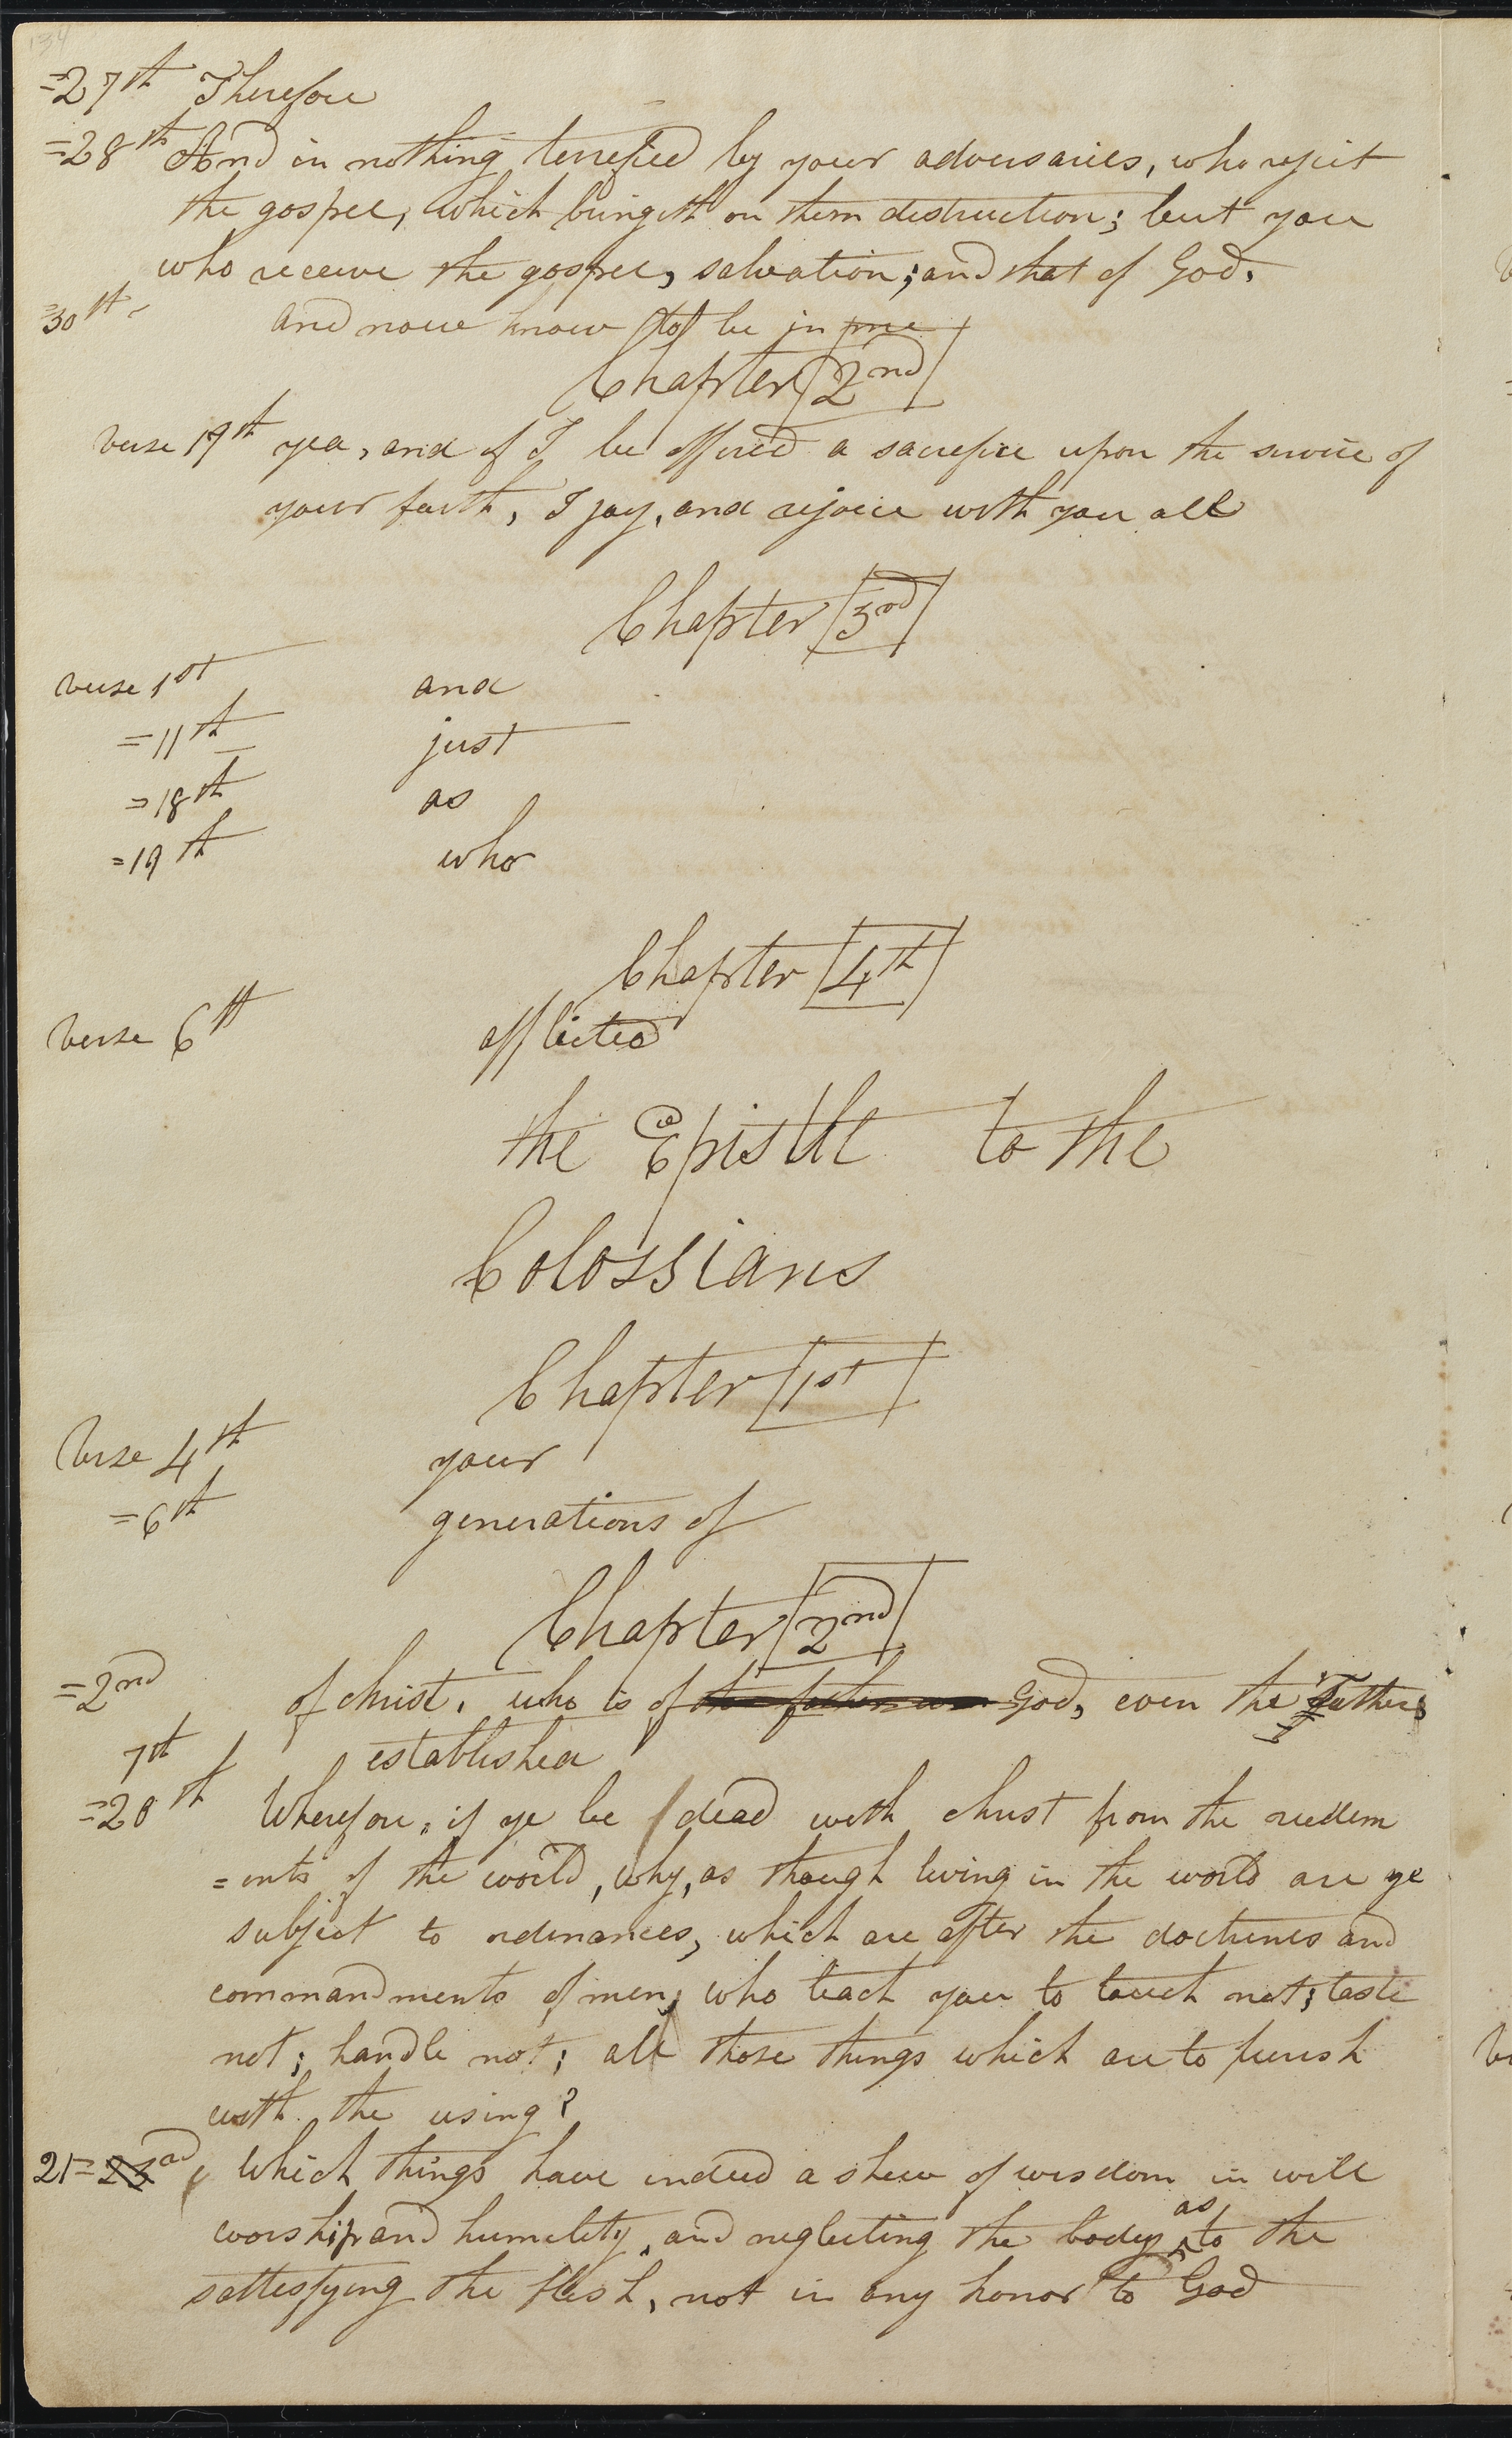 134
=27th Therefore
=28th And in nothing terrefied by your adversaries, who reject
the gospel, which bringeth on them destruction; but you
who receive the gospel, salvation; and that of God.
=30th- and now know to be in me
Chapter 2nd
verse 17th yea, and if I be offered a sacrefice upon the service of
your faith, I joy, and rejoice with you all
Chapter 3rd
verse 1st and
=11th just
=18th as
=19th who
Chapter 4th
verse 6th afflicted
the Epistle to the
Colossians
Chapter 1st
Verse 4th your
=6th generations of
Chapter 2nd
=2nd of christ, who is of the father and God, even the Father
7th established
=20th Wherefore, if ye be dead with christ from the rudem
=ents of the world, why, as though living in the world are ye
subject to ordinances, which are after the doctrines and
commandments of men; who teach you to touch not; taste
not; handle not; all those things which are to perish
with the using?
21= Which things have indeed a shew of wisdom in will
worship and humility, and neglecting the body as to the
sattesfying the flesh, not in any honor to God